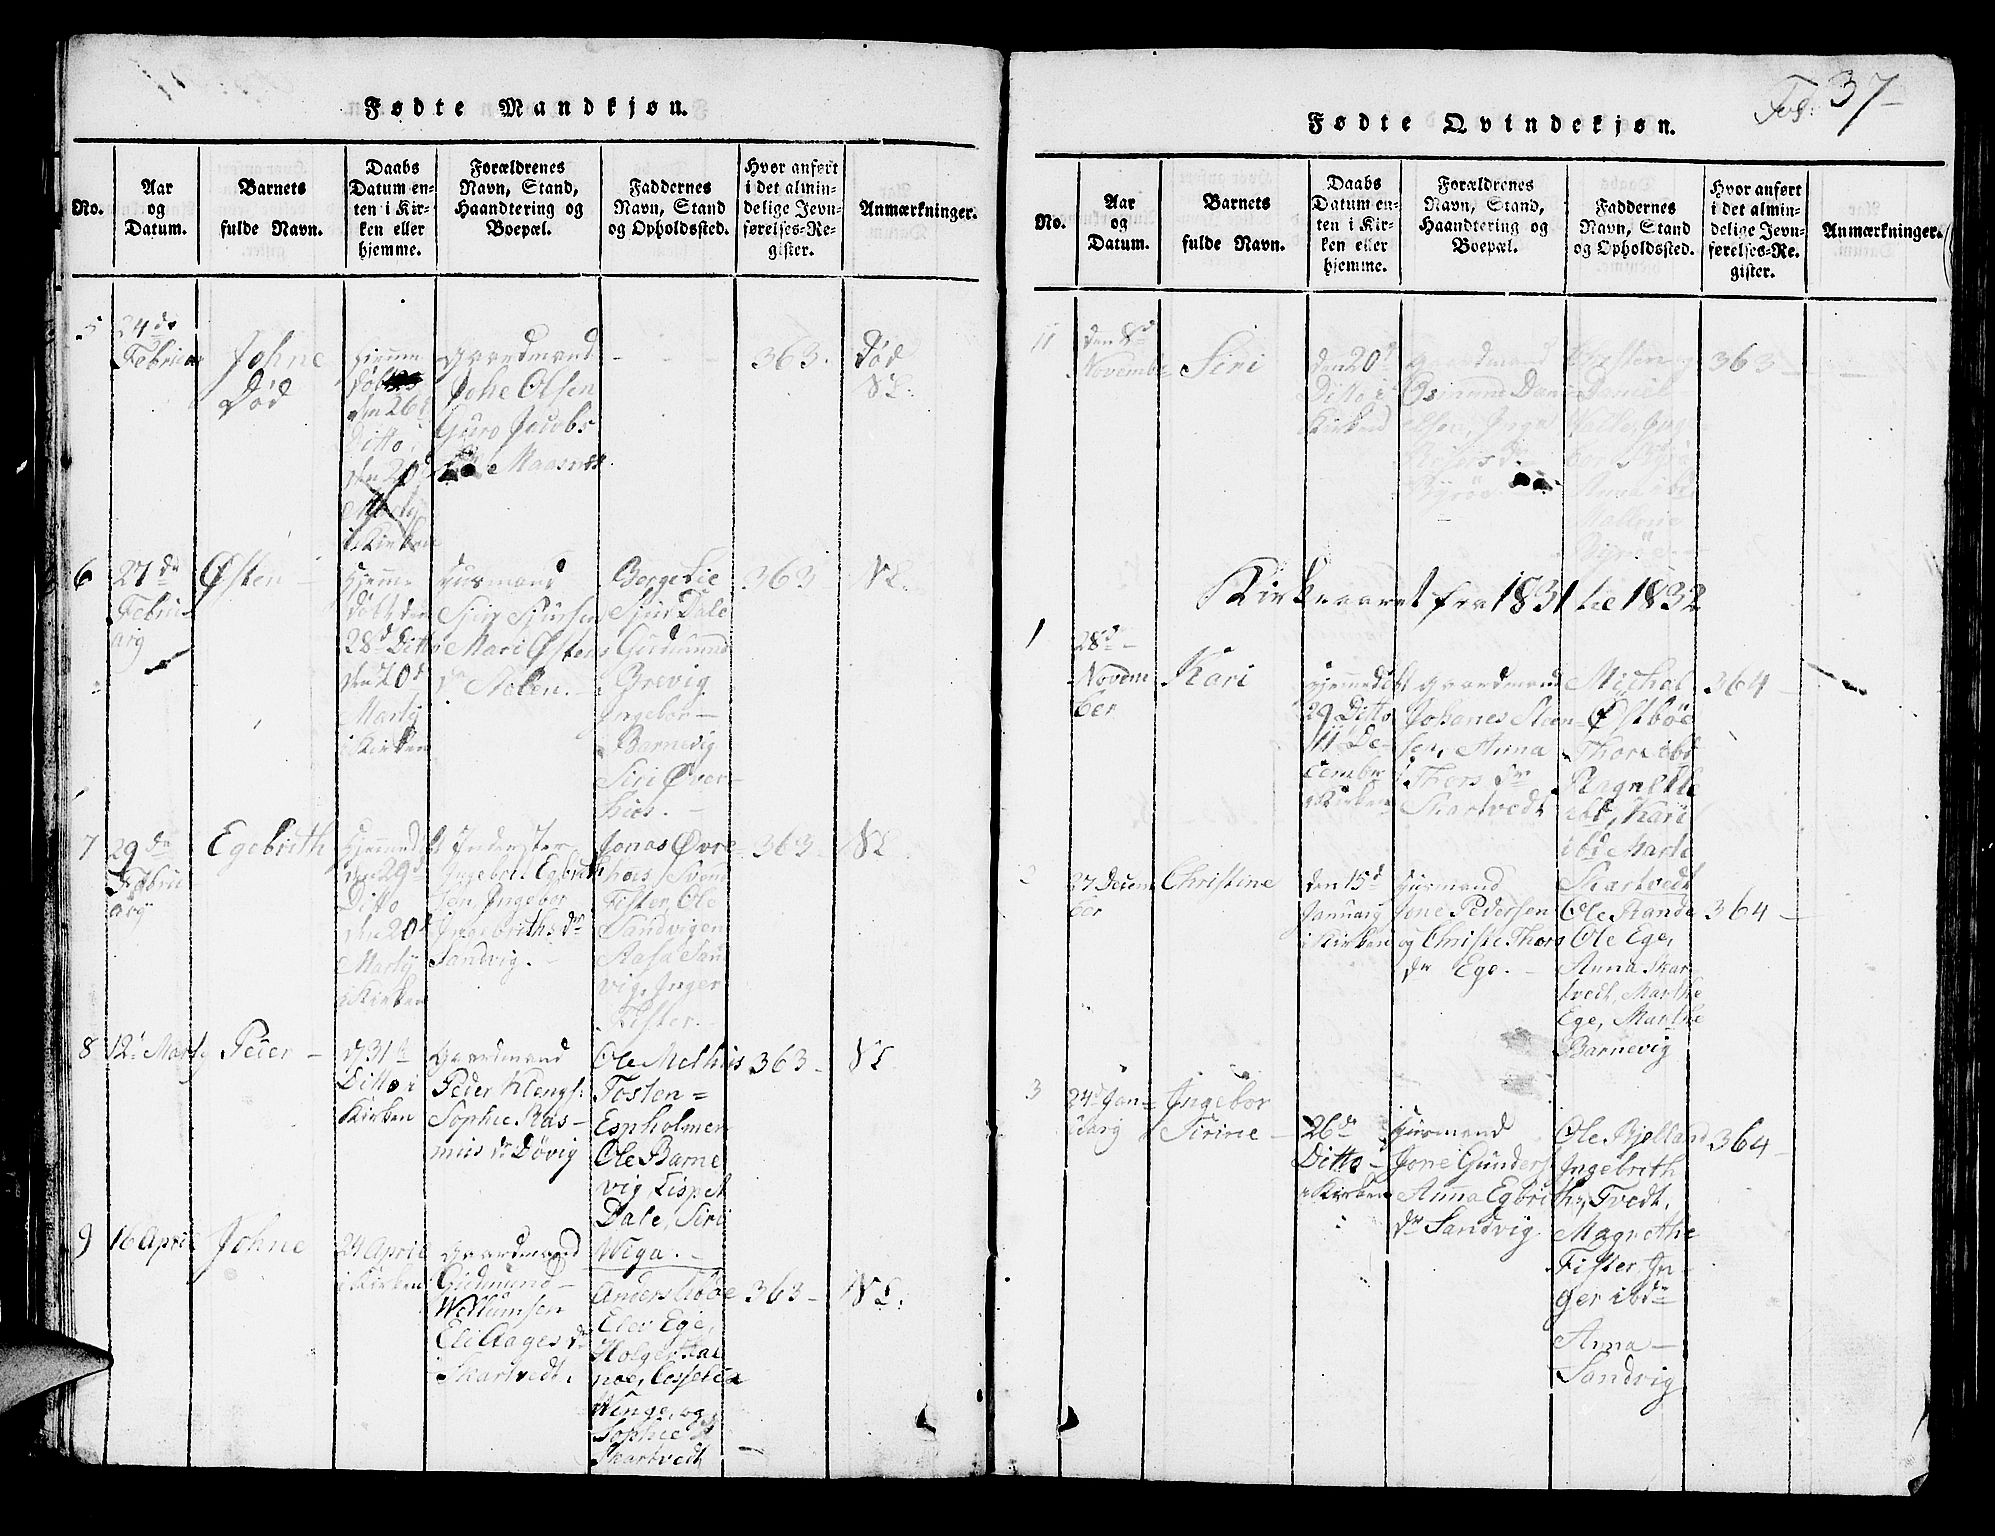 Fødte Mandkjøn.
No.
Aar
og
Datum.
Barnets
fulde Navn.
Daabs
Datum en-
ten i Kir-
ken eller
hjemme.
Forældrenes
Navn, Stand,
Haandtering og
Boepæl.
Faddernes
Navn, Stand
og Opholdssted.
Hvor anført
i det almin-
delige Jevn-
førelses-Re-
gister.
Anmærkninger.
5
24de
Johne
Død
hjemme
døbt
den 26d
Ditto
den 20d
Marty
i Kirken
Gaardmand
Johe Olsen
Guro Jacobs
Maasnes
363.
Død
NL.
6
27de
Febru-
arij
Østen
hjemme
døbt den
28d Ditto
den 20d
Marty
i Kirken
Huusmand
Mari Østens
dr
Borge Lie
Siur Dale
Gudmund
Brevig
Ingebor
Barnevig
Siri Øver-
hus.
363
NL.
7
29de
Febru-
arij
Egebrith
hjemmedøbt
den 29d
Ditto
den 20d
Marty
i Kirken
Inderster
Ingebret Egbrith
sen, Ingebor
Ingebriths dr
Sandvig.
Jonas Øvre-
huus, Svend
Fister, Ole
Sandvigen
Aasa Sand-
vig, Inger
Fister.
363
NL.
8
12t Marty
Peder
d 31t
Ditto i
Kirken
Gaardmand
Peder Klengs:
Sophie Ras-
mus dr Døvig
Ole Melhus
Tosten =
Espholmen
Ole Barne
vig, Lispet
Dale, Siri
Wiga.
363
NL
9
16 April
Johne
24 April
i Kirken
Gaardmand
Gudmund
Willumsen
Eli Aages dr
Skartvedt.
Anders
Elev Ege,
Holger
Winge, og
Sophie
Skartvedt
363
NL.
Fødte Qvindekjøn.
Fol: 37
No.
Aar
og
Datum.
Barnets
fulde Navn.
Daabs
Datum en-
ten i Kir-
ken eller
hjemme.
Forældrenes
Navn, Stand,
Haandtering og
Boepæl.
Faddernes
Navn, Stand
og Opholdssted.
Hvor anført
i det almin-
delige Jevn-
førelses-Re-
gister.
Anmærkninger.
11
den 8d
Novembr
Siri
den 20d
Ditto i
Kirken
Gaardmand
Osmund Dani-
elsen, Inger
Byrøe
Daniel
Mallene
Byrøe.
363
Kirkeaaret fra 1831 til 1832
1
28de
Novem
ber
Kari
hjemmedøbt
29 Ditto
11 De-
cembr
i Kirken
Gaardmand
Johanes Steen-
sen, Anna
Thors dr
Skartvedt
Michel
Østbøe
Thor ibd
Ragnilde
ibd, Kari
ibd Marte
Skartvedt
364
2
27 Decem
ber
Christine
den 15d
Januarij
i Kirken
Huusmand
Jone Pedersen
og Christi Thors
dr Ege.
Ole Rande
Ole Ege,
Anna Skar-
tvedt, Marthe
Ege, Marthe
Barnevig
364
3
24d Jan-
uarij
Ingebor
Sirine
26de
Ditto
i Kirken
Huusmand
Jone Gunders
Anna Egbriths
dr Sandvig
Ole Bjelland
Ingebrith
Tvedt,
Magrethe
Fister, In-
ger ibdn
Anna
Sandvig
364